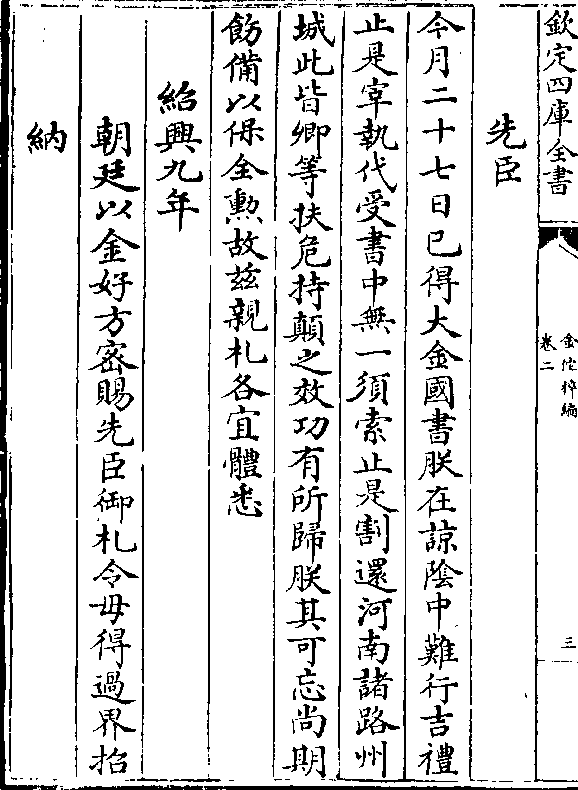 欽定四庫全書
金佗稡編
卷二
三
先臣
今月二十七日已得大金國書朕在諒陰中難行吉禮
止是宰執代受書中無一須索止是割還河南諸路州
城此皆卿等扶危持顛之效功有所歸朕其可忘尚期
飭備以保全勲故兹親札各宜體悉
紹興九年
朝廷以金好方密賜先臣御札令毋得過界招
納